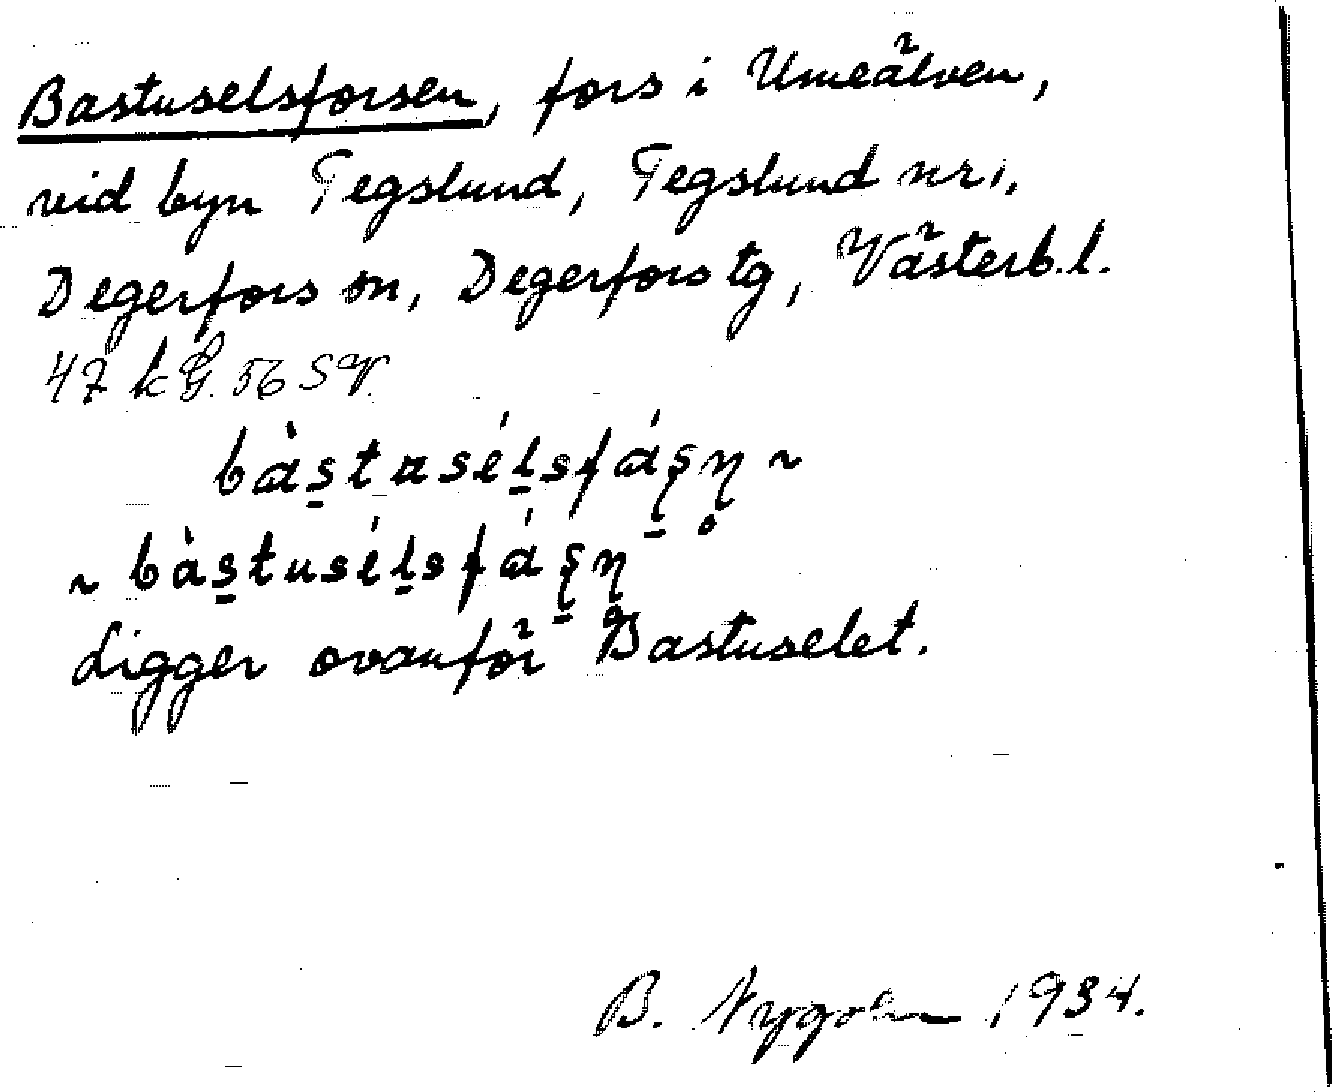 Bastuselsforsen, fors i Umeälven,
vid byn Tegslund, Tegslund nr 1,
Degerfors sn, Degerfors tg, Västerb.l.
47 k G. 56 SV.
bàs̠tusél̠sfáʂ̠ņ̊ ~
~ bàs̠tusél̠sfáʂ̠ņ̊
Ligger ovanför Bastuselet.
B. 1934.